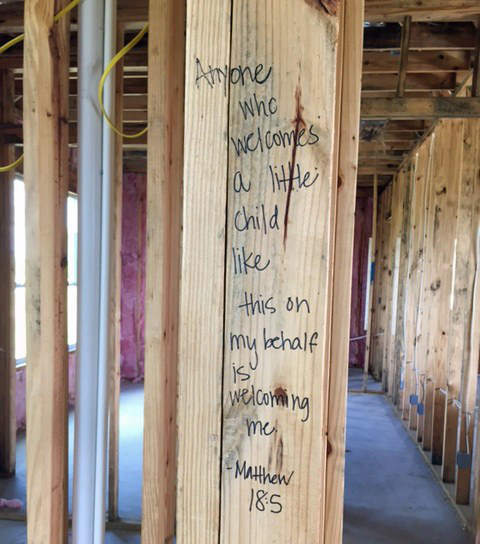 Anyone
who
welcomes
a little
child
like
this on
my behalf
is
welcoming
me.
-Matthew
18:5